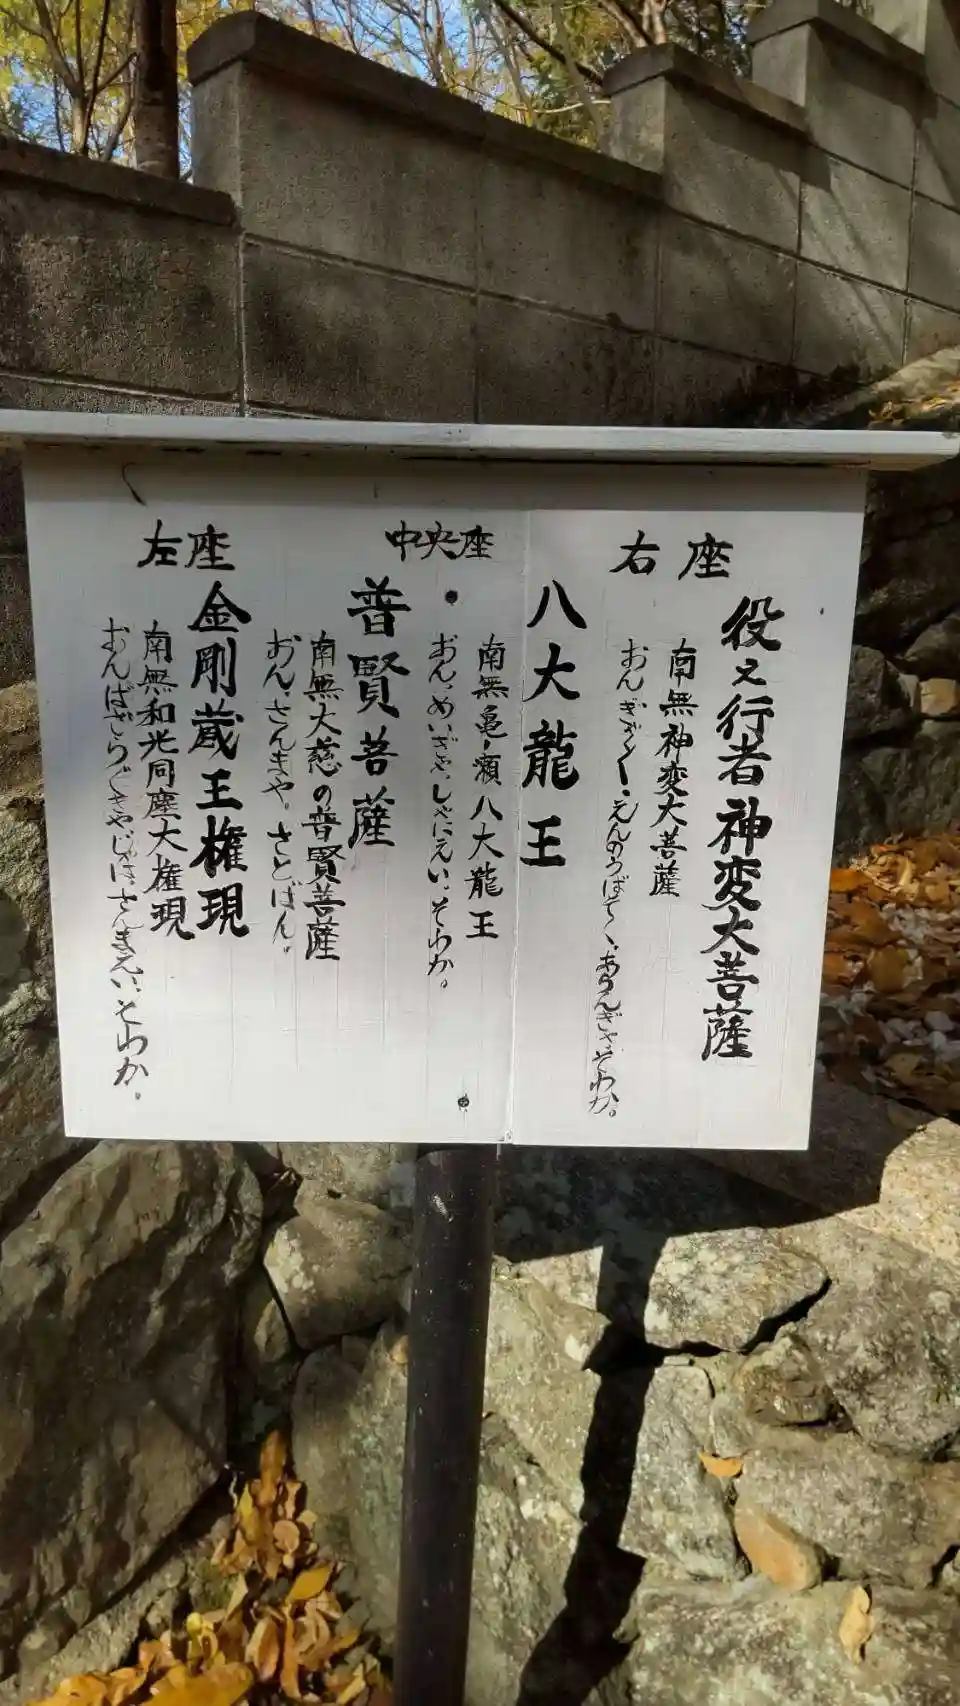 右座
役之行者神変大菩薩
南無神変大菩薩
おんぎゃくぎゃくえんのうばそくあらんぎゃそわか。
中央座
八大龍王
南無亀ノ瀬八大龍王
おん、めいぎゃ、しゃにえい、そわか。
普賢菩薩
南無大慈の普賢菩薩
おん、さんまや、さとばん。
左座
金剛蔵王権現
南無和光同塵大権現
おんばざらくぎゃじゃは、さんまえい、そわか。